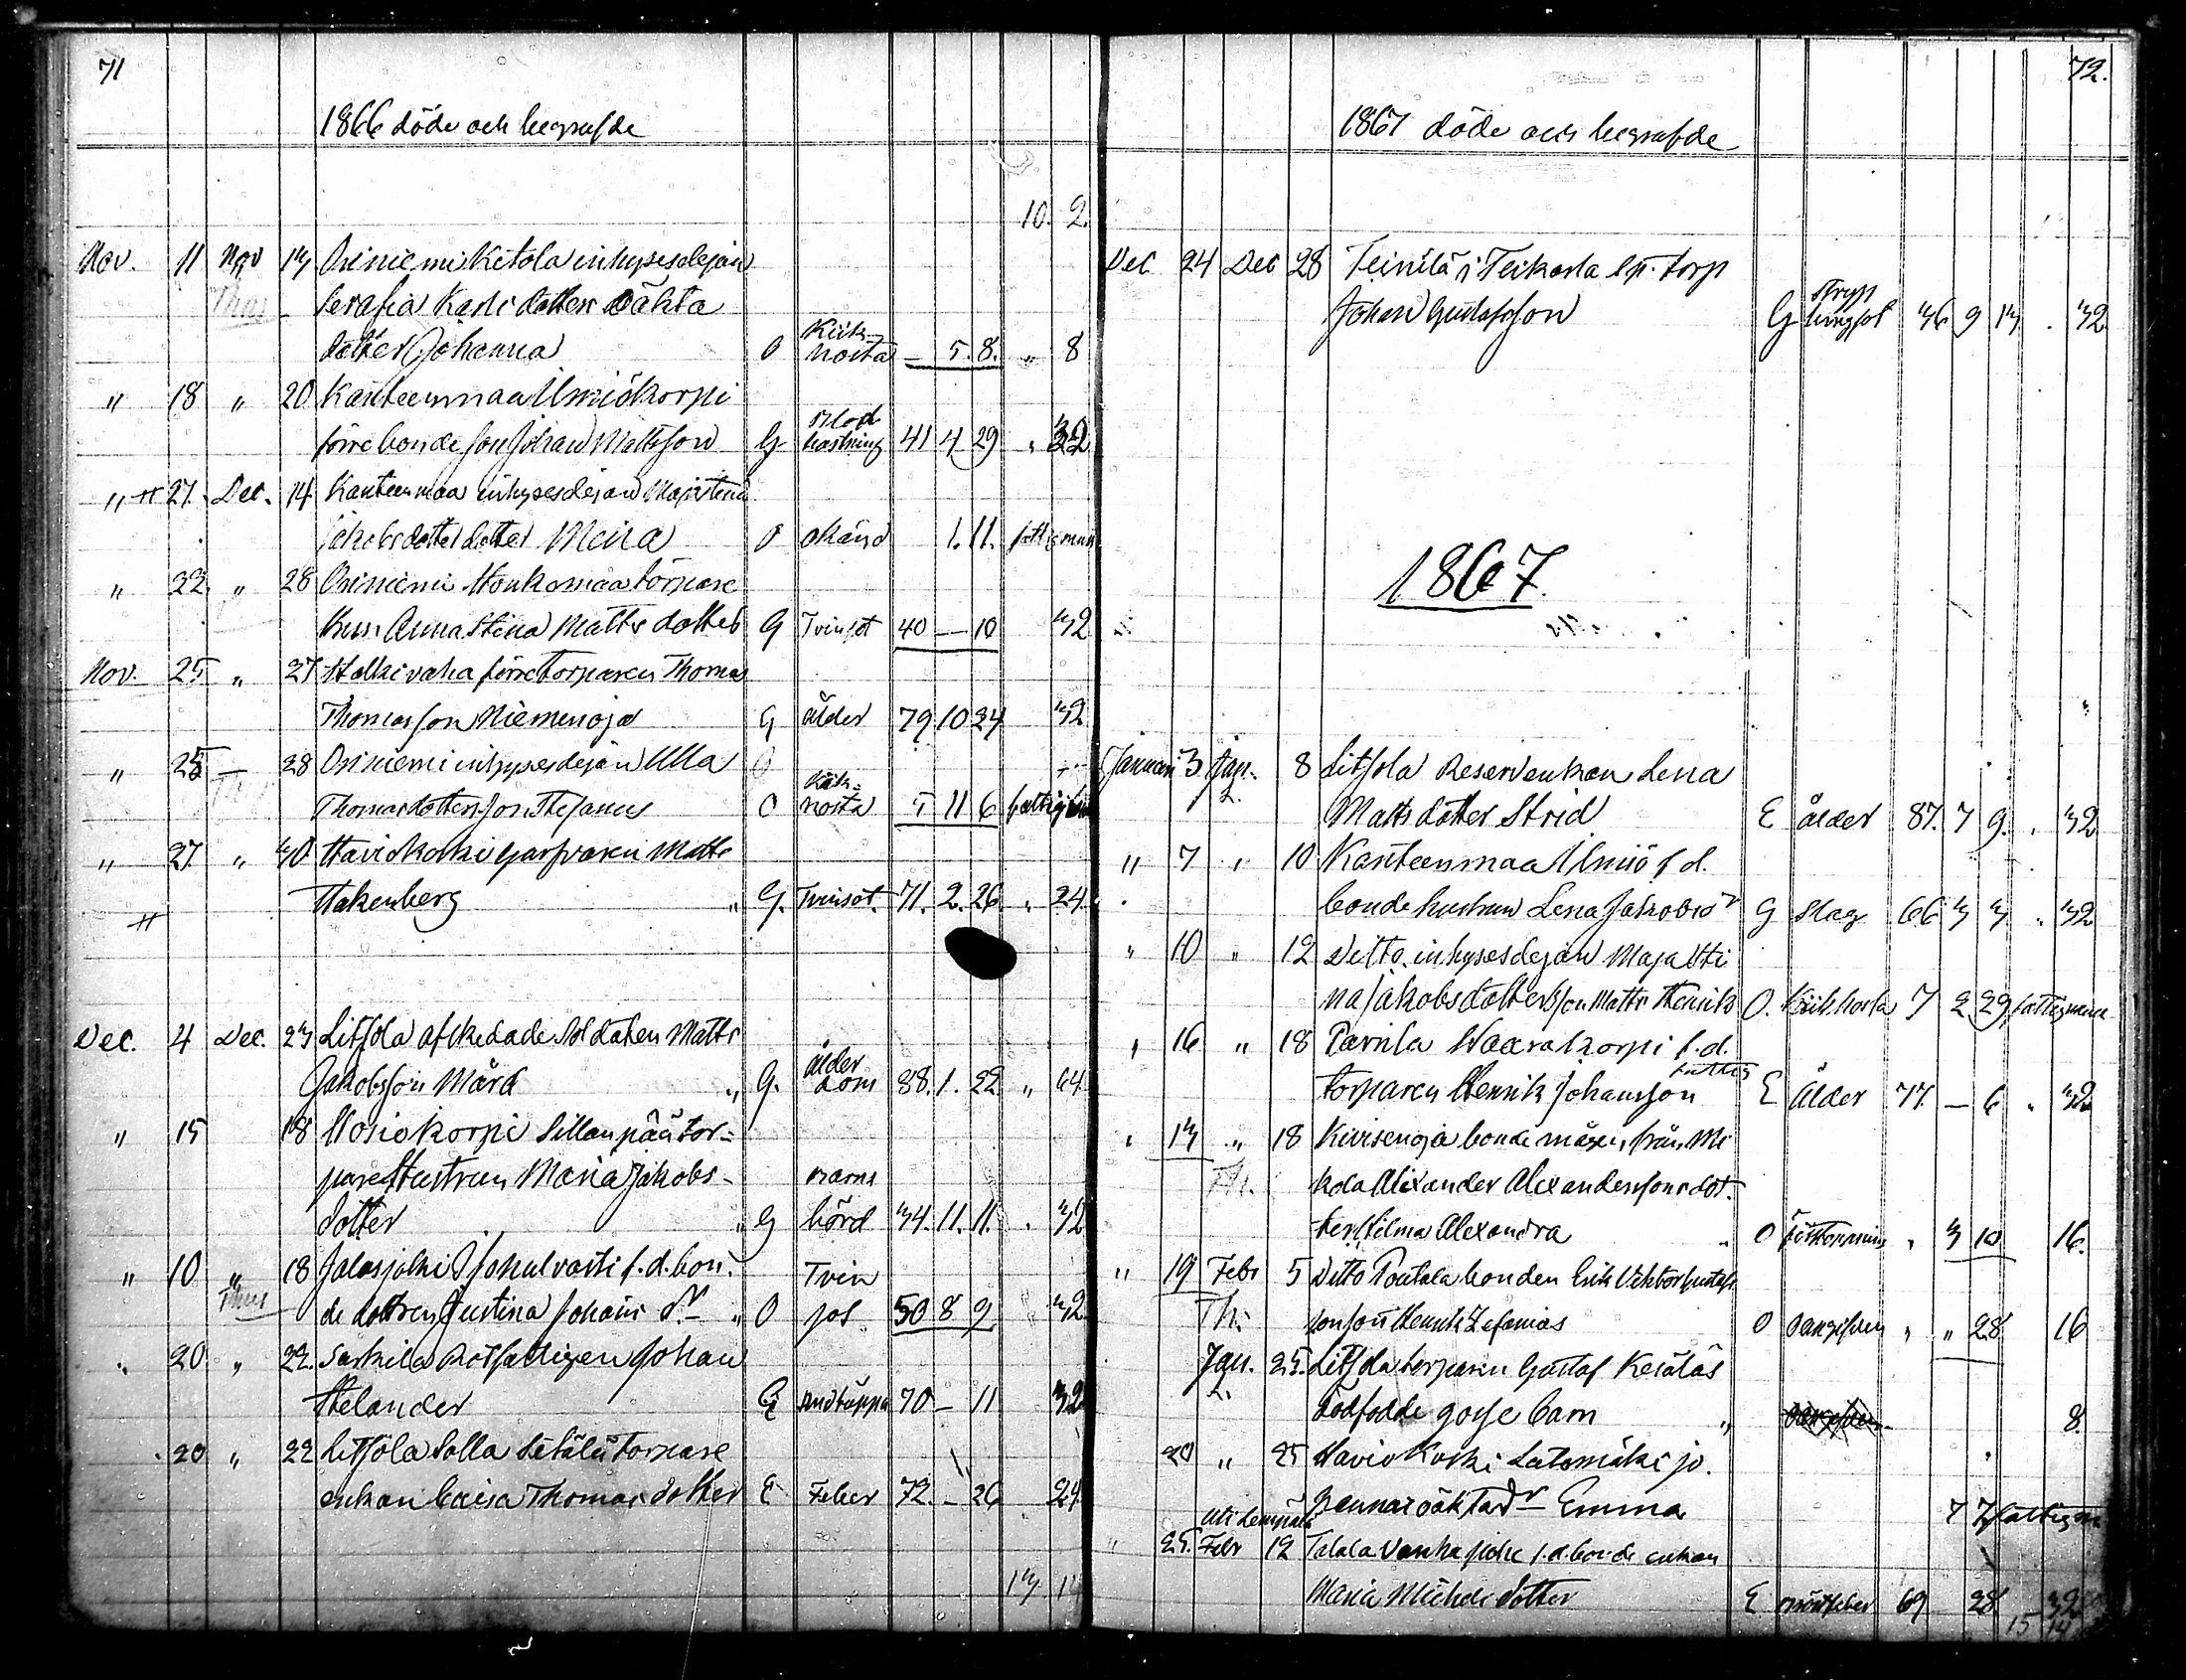 71
1866 döde och begrafde
10. 2.
Nov. 11 Nov 13 Oriniemi Ketola inhysesdejan
Serafia Karls dotters oäkta
dotter Johanna O Kik-
hosta — 5. 8. „ 8
„ 18 „ 20 Kanteenmaa Ilmiökorpi
förre bonde son Johan Mattsson G Blod
hostning 41 4 29 „ 32
„ 27. Dec. 14 Kanteenmaa inhysesdejan Maja Stina
Jakobsdotters dotter Mina O okänd 1. 11. fattigman
„ 22. „ 28 Oriniemi Honkamaa torpare
hus. Anna Stina Matts dotter G Tvinsot 40 — 10 32
Nov. 25 „ 27 Halkivaha förre torparen Thomas
Thomasson Niemenoja G ålder 79 10 24 32
„ 25 — 28 Oriniemi inhysesdejan Ulla
Thomasdotters son Stefanus O Kik-
hosta 5 11 6 fattigman
„ 27 „ 30 Haviokoski garfvaren Matts
Hakenberg „ G. Tvinsot. 71. 2. 26 „ 24
Dec. 4 Dec. 23 Litsola afskedade Soldaten Matts
Jakobsson Mård „ G. ålder
dom 88. 1. 22 „ 64
„ 15 18 Nosiokorpi Sillanpää tor-
pare Hustrun Maria Jakobs- barns
dotter „ G börd 34. 11. 11. „ 32
„ 10 „ 18 Jalasjoki f. d. bon- Tvin
de dottren Justina Johans dr „ O sot 50 8 9 32
„ 20 „ 22. Sarkila Rotfattigen Johan
Helander G andtäppa 70 — 11 32
„ 20 „ 22 Litsola Solla Sätälä torpare
enkan Caisa Thomas dotter E Feber 72 — 26 24
13 14
72.
1867 döde och begrafde
Dec 24 Dec 28 Teinilä i Teikarla torp
Johan Gustafsson G stryp
ningsot 36 9 13 . 32
1867.
Januari 3 Jan. 8 Litsola Reservenkan Lena
Matts dotter Strid E ålder 87. 7 9. „ 32
„ 7 „ 10 Kanteenmaa Ilmiö f d.
bonde hustrun Lena Jakobs dr G slag 66 3 3 „ 32
„ 10 „ 12 Ditto inhysesdejan Maja Sti
na Jakobsdotters son Matts Henrik O. Kikhosta 7 2 29 fattigman
„ 16 „ 18 Pärnla Waarakorpi f. d.
torparen Henrik Johansson E Ålder 77. — 6 „ 32
„ 13 „ 18 Kivisenoja bonde mågen från Mi
Th. kola Alexander Alexanderssons dot-
ter Hilma Alexandra O „ 3 10 16.
„ 19 Febr 5 Ditto Poutala bonden Erik Viktor Gustafs
Th. son son Henrik Zefanias O „ „ 28 16
Jan. 25. Litsola torparen Gustaf Kesäläs
2. dödfödde gosse barn „ 8.
20 „ 25 Haviokoski Latomäki
oäkta dr Emma 7 7 fattigman
„ 25. Febr 12 Talala Vanhapiha f. d. bonde enkan
Maria Michels dotter E 69 28 32
15 14